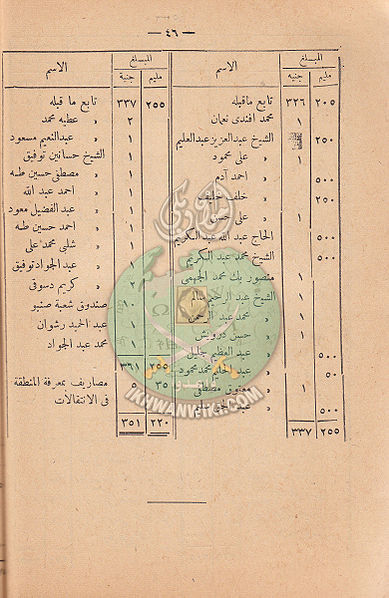 — ٤٦ —
المبلغ الاسم المبلغ الاسم
مليم جنيه مليم جنيه
٢٠٥ ٣٢٦ تابع ماقبله
١ محمد افندى نعمان
٢٥٠ الشيخ عبدالعزيز عبدالعليم
١ » على محمود
٥٠٠ » احمد آدم
٢٥٠ » خلف خليف
١ » على حسن
٥٠٠ الحاج عبد الله عبد الكريم
٥٠٠ الشيخ محمد عبد الكريم
١ منصور بك محمد الجهمى
١ الشيخ عبد الرحيم سالم
١ » محمد عبد الرحمن
١ » حسين درويش
٥٠٠ » عبد العظيم خليل
٥٠ » عبد الحليم محمد محمود
١ » معتوق مصطفى
٥٠٠ » عبد
٢٥٥ ٣٣٧
٢٥٥ ٣٣٧ تابع ما قبله
٢ » عطيه محمد
١ » عبدالنعيم مسعود
١ الشيخ حسانين توفيق
١ » مصطفى حسين طه
١ » احمد عبد الله
١ » عبد الفضيل معود
١ » احمد حسين طه
١ » شلبى محمد على
١ » عبد الجواد توفيق
٢ » كريم دسوقى
١٠ صندوق شعبة صنبو
١ عبد الحميد رشوان
١ محمد عبد الجواد
٢٥٥ ٣٦١
٣٥ ٥ مصاريف بمعرفة المنطقة
فى الانتقالات
٢٢٠ ٣٥١
IKHWANWIKI.COM